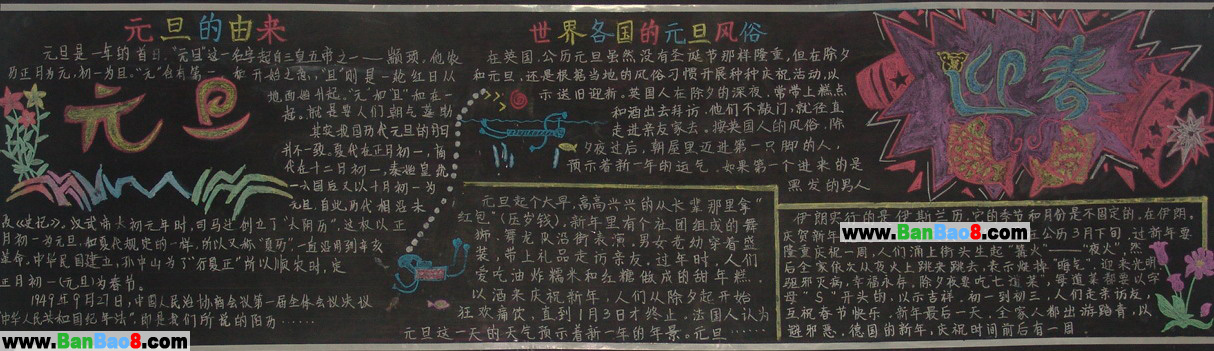 元旦的由来
元旦是一年的首日."元旦"这一名字起自三皇五帝之一——颛顼,他以
农历正月为元,初一为旦."元"含有第一和开始之意,"旦"则是一轮红日从
地面回升起."元"和"旦"和在一
起,就是要人们朝气蓬勃
元旦
其实我国历代元旦的月日
并不一致。夏代在正月初一,商
代在十二月初一,秦始皇统
一六国后又以十月初一为
元旦,自此,历代相沿未
改《史记》。汉武帝太初元年时,司马迁创立了"太阴历",这权以正
月初一为元旦,和夏代规定的一样,所以又称"夏历",一直沿用到辛亥
革命。中华民国建立,孙中山为了"行夏正"所以顺农时,定
正月初一(元旦)为春节。
1949年9月27日,中国人民政治协商会议第一届全体会议决议
"中华人民共和国纪年法",即是我们所说的阳历……
www.BanBao8.com
世界各国的元旦风俗
在英国,公历元旦虽然没有圣诞节那样隆重,但在除夕
和元旦,还是根据当地的风俗习惯开展种种庆祝活动,以
示送旧迎新。英国人在除夕的深夜,常带上糕点
和酒出去拜访,他们不敲门,就径直
走进亲友家去。按英国人的风俗,除
夕夜过后,朝屋里迈进第一只脚的人,
预示着新一年的运气。如果第一个进来的是
黑发的男人
元旦起个大早,高高兴兴的从长辈那里拿"
红包"(压岁钱),新年里有个社团组成的舞
狮、舞龙队沿街表演,男女老幼穿着盛
装,带上礼品走访亲友。过年时,人们
爱吃油炸糯米和红糖做成的甜年糕,
以酒来庆祝新年,人们从除夕起开始
狂欢痛饮,直到1月3日才终止,法国人认为
元旦这一天的天气预示着新一年的年景。元旦……
迎春
伊朗实行的是伊斯兰历,它的季节和月份是不固定的,在伊朗,
庆贺新年
www.BanBao8.com
公历3月下旬,过新年要
隆重庆祝一周,人们涌上街头生起"篝火"——"夜火",然
后全家依次从
火上跳来跳去,表示烧掉"晦气",迎来光明,
驱邪灭病,幸福永存。除夕夜要吃七道菜,每道菜都要以字
母"S"开头的,以示吉祥,初一到初三,人们走亲访友,
互祝春节快乐,新年最后一天,全家人都出游踏青,以
避邪恶.德国的新年,庆祝时间前后有一周.
www.BanBao8.com